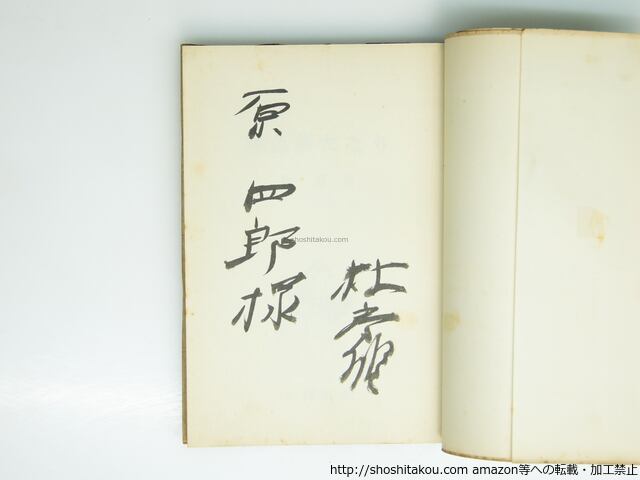 原 四郎様
shoshitakou.com
http://shoshitakou.com amazon等への転載・加工禁止